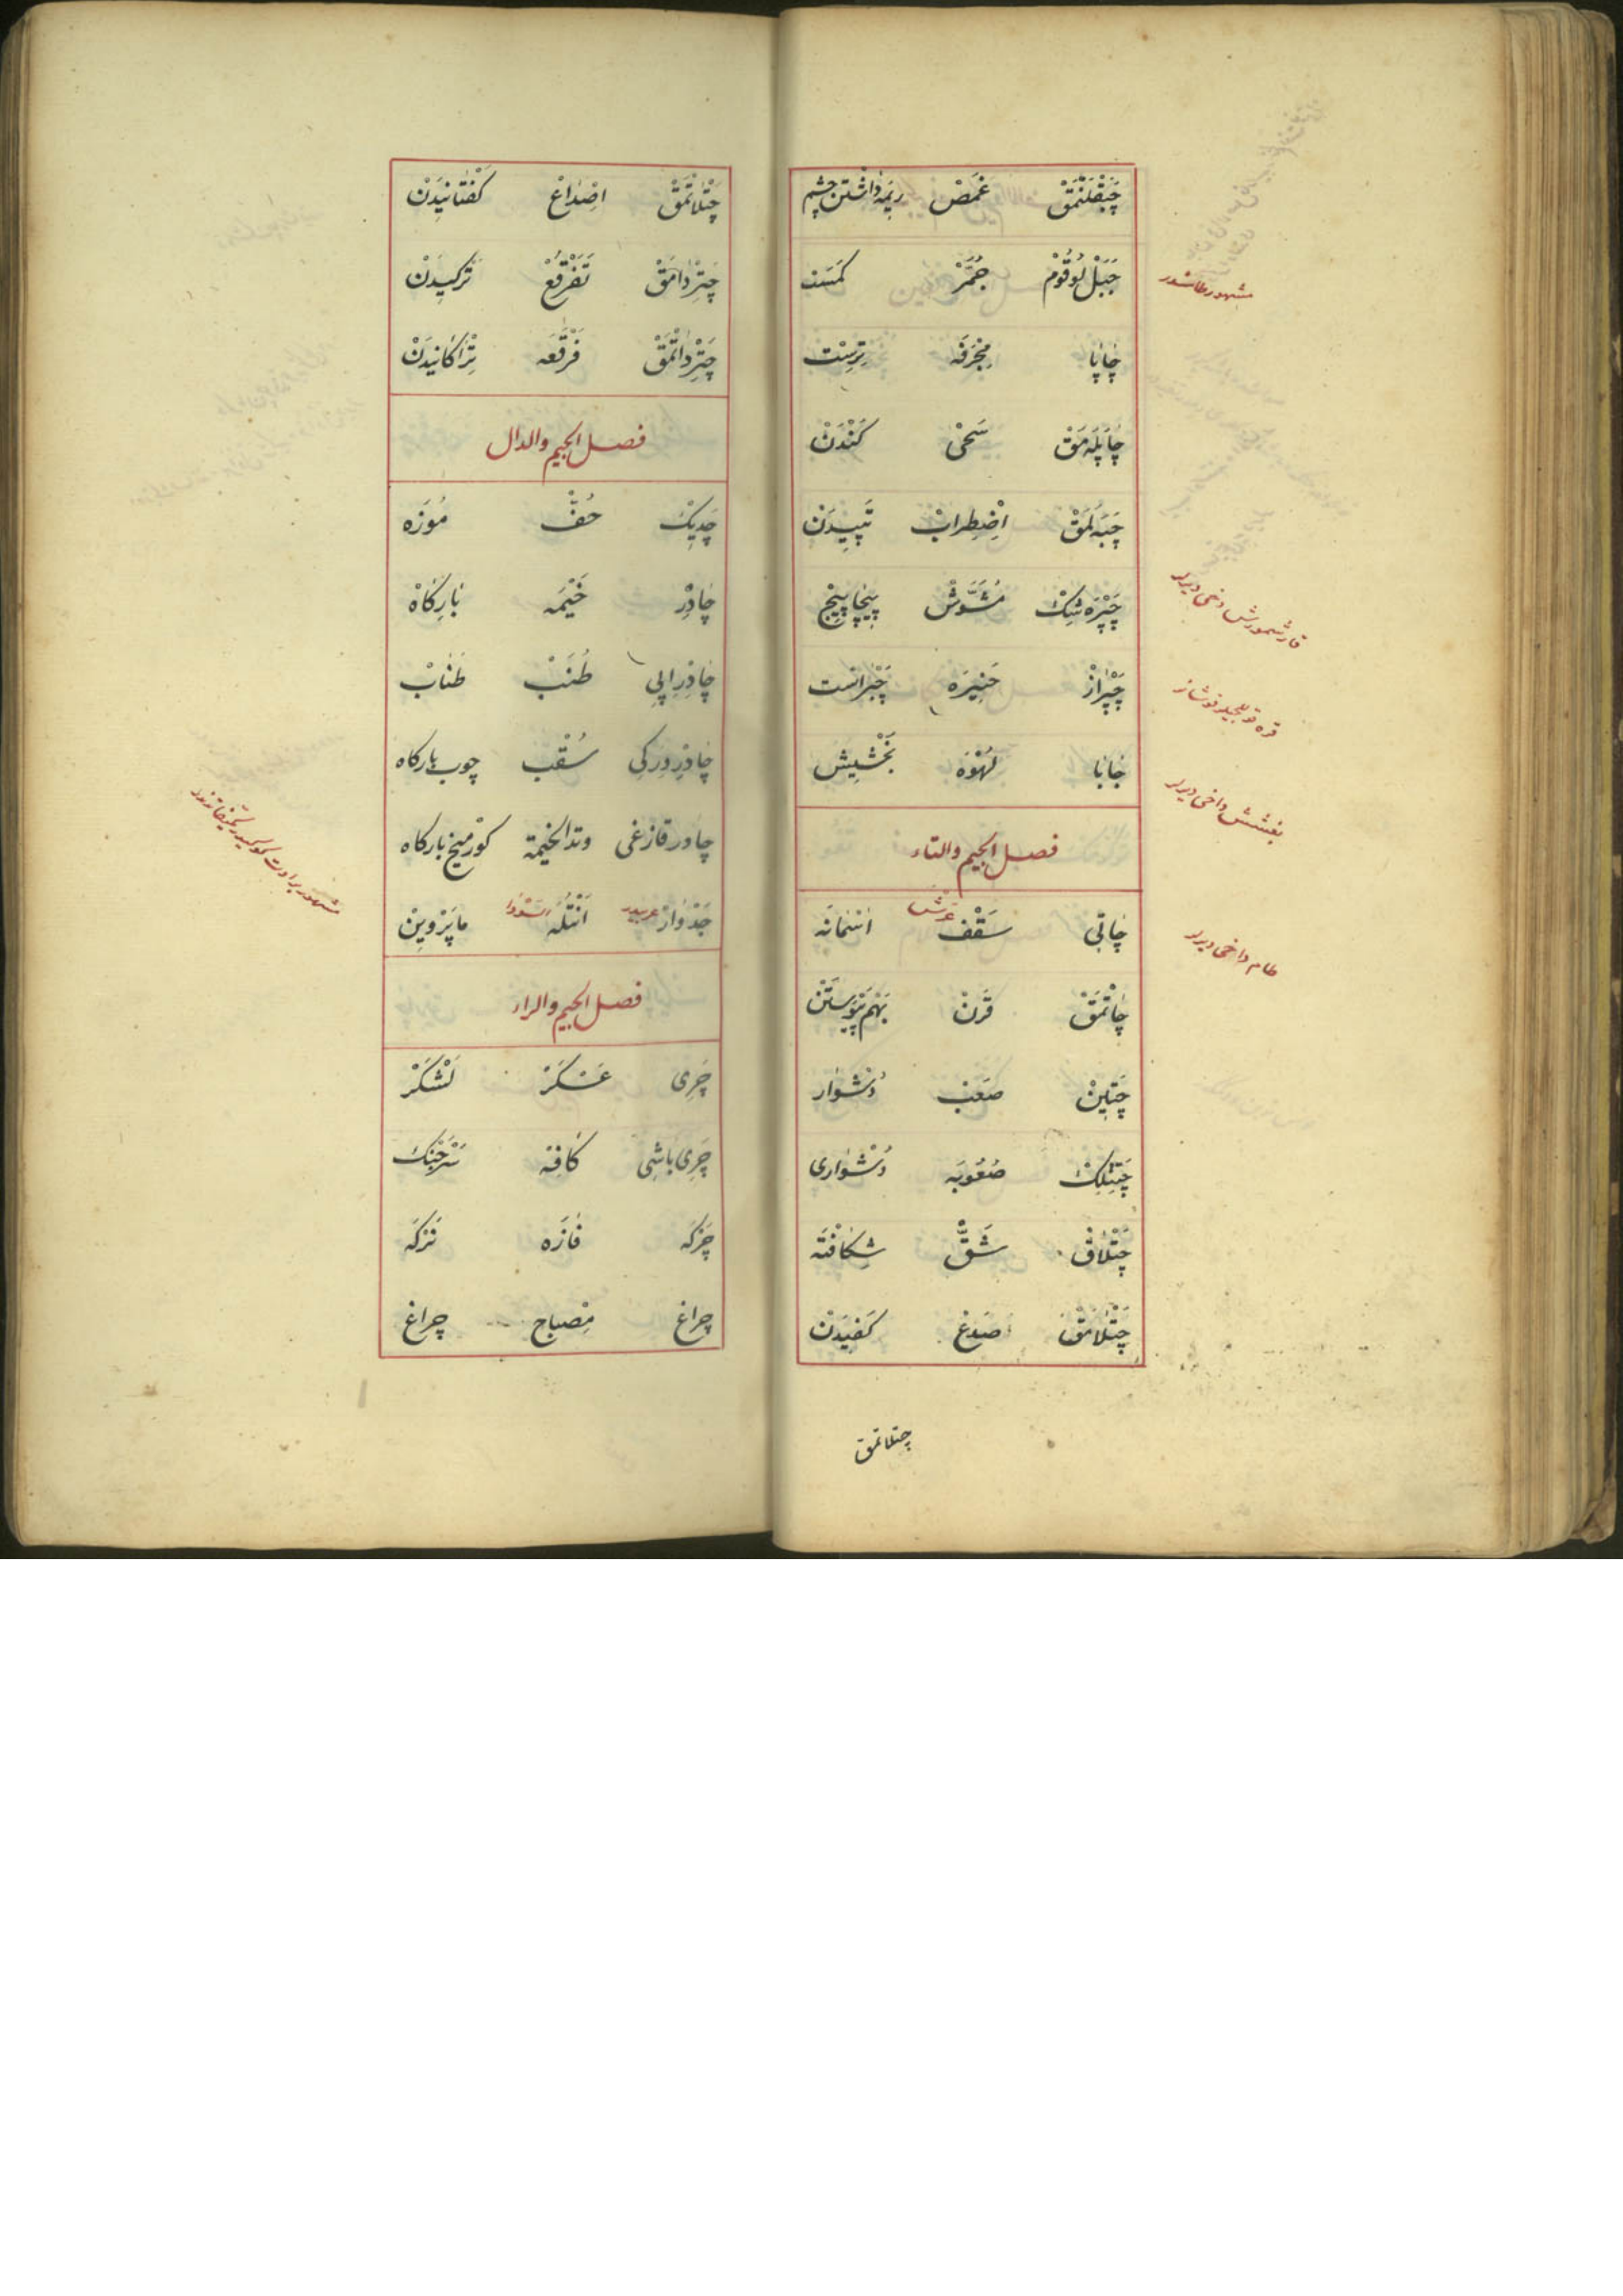 چَپْقَلَنْمَقْ غَمَصْ رِیمَه دَاشْتَنِ چشم
جَبَلْ لُوقُومْ جُمَّزْ كَمَسْت
مشهور طاشدر
چَاپَا مِجْرَفَه
چَاپَلَه مَقْ سَحْیْ كَنْدَنْ
چَپَه لَمَقْ اِضْطِرَابْ تَپِیدَنْ
چَپْرَه شِكْ مُشَوَّشْ پِیچَاپِیچْ
قارشمورش دخی دیرلر
چَپْرَازْ چَپْرَاسْت
جَابَا لُهْوَه بَخْشِیشْ
بغشش داخی دیرلر
فصل الجیم والتاء
چَاتِی سَقْفْ عَرْش اسْمَانَه
طام داخی دیرلر
چَاتْمَقْ قَرَنْ بَهَمْ پَیْوَسْتَنْ
چَتِینْ صَعَبْ دُشْوَار
چَتِنْلِكْ صُعُوبَه دُشْوَارِی
چَتْلَاقْ شَقّْ شِكَافْتَه
چَتْلَامَقْ صَدَعْ كَفِیدَنْ
چتلاتمق
چَتْلَاتْمَقْ اِصْدَاعْ كَفْتَانِیدَنْ
چَتِرْدَامَقْ تَفَرْقُعْ تَرَكِیدَنْ
چَتِرْدَاتْمَقْ فَرْقَعَه تِرَاكَانِیدَنْ
فصل الجیم والدال
چَدِیكْ خُفّْ مُوزَه
چَادِرْ خَیْمَه بَارِكَاهْ
چَادِرْ اِیپِی طُنَبْ طَنَابْ
چَادِرْ دِرَكِی سُقْبْ چوب باركاه
چادر قازغی وتد الخیمة كورمیخ باركاه
جَدْوَارْ عربیدر اَنْتُلَه السَّوْدَا مَاپَرْوِینْ
فصل الجیم والراء
چَرِی عَسْكَرْ لَشْكَرْ
چَرِی بَاشِی كَافِه سَرْجَنْك
چَرْكَه فَازَه نَرْكَه
چِرَاغْ مِصْبَاحْ چِرَاغْ